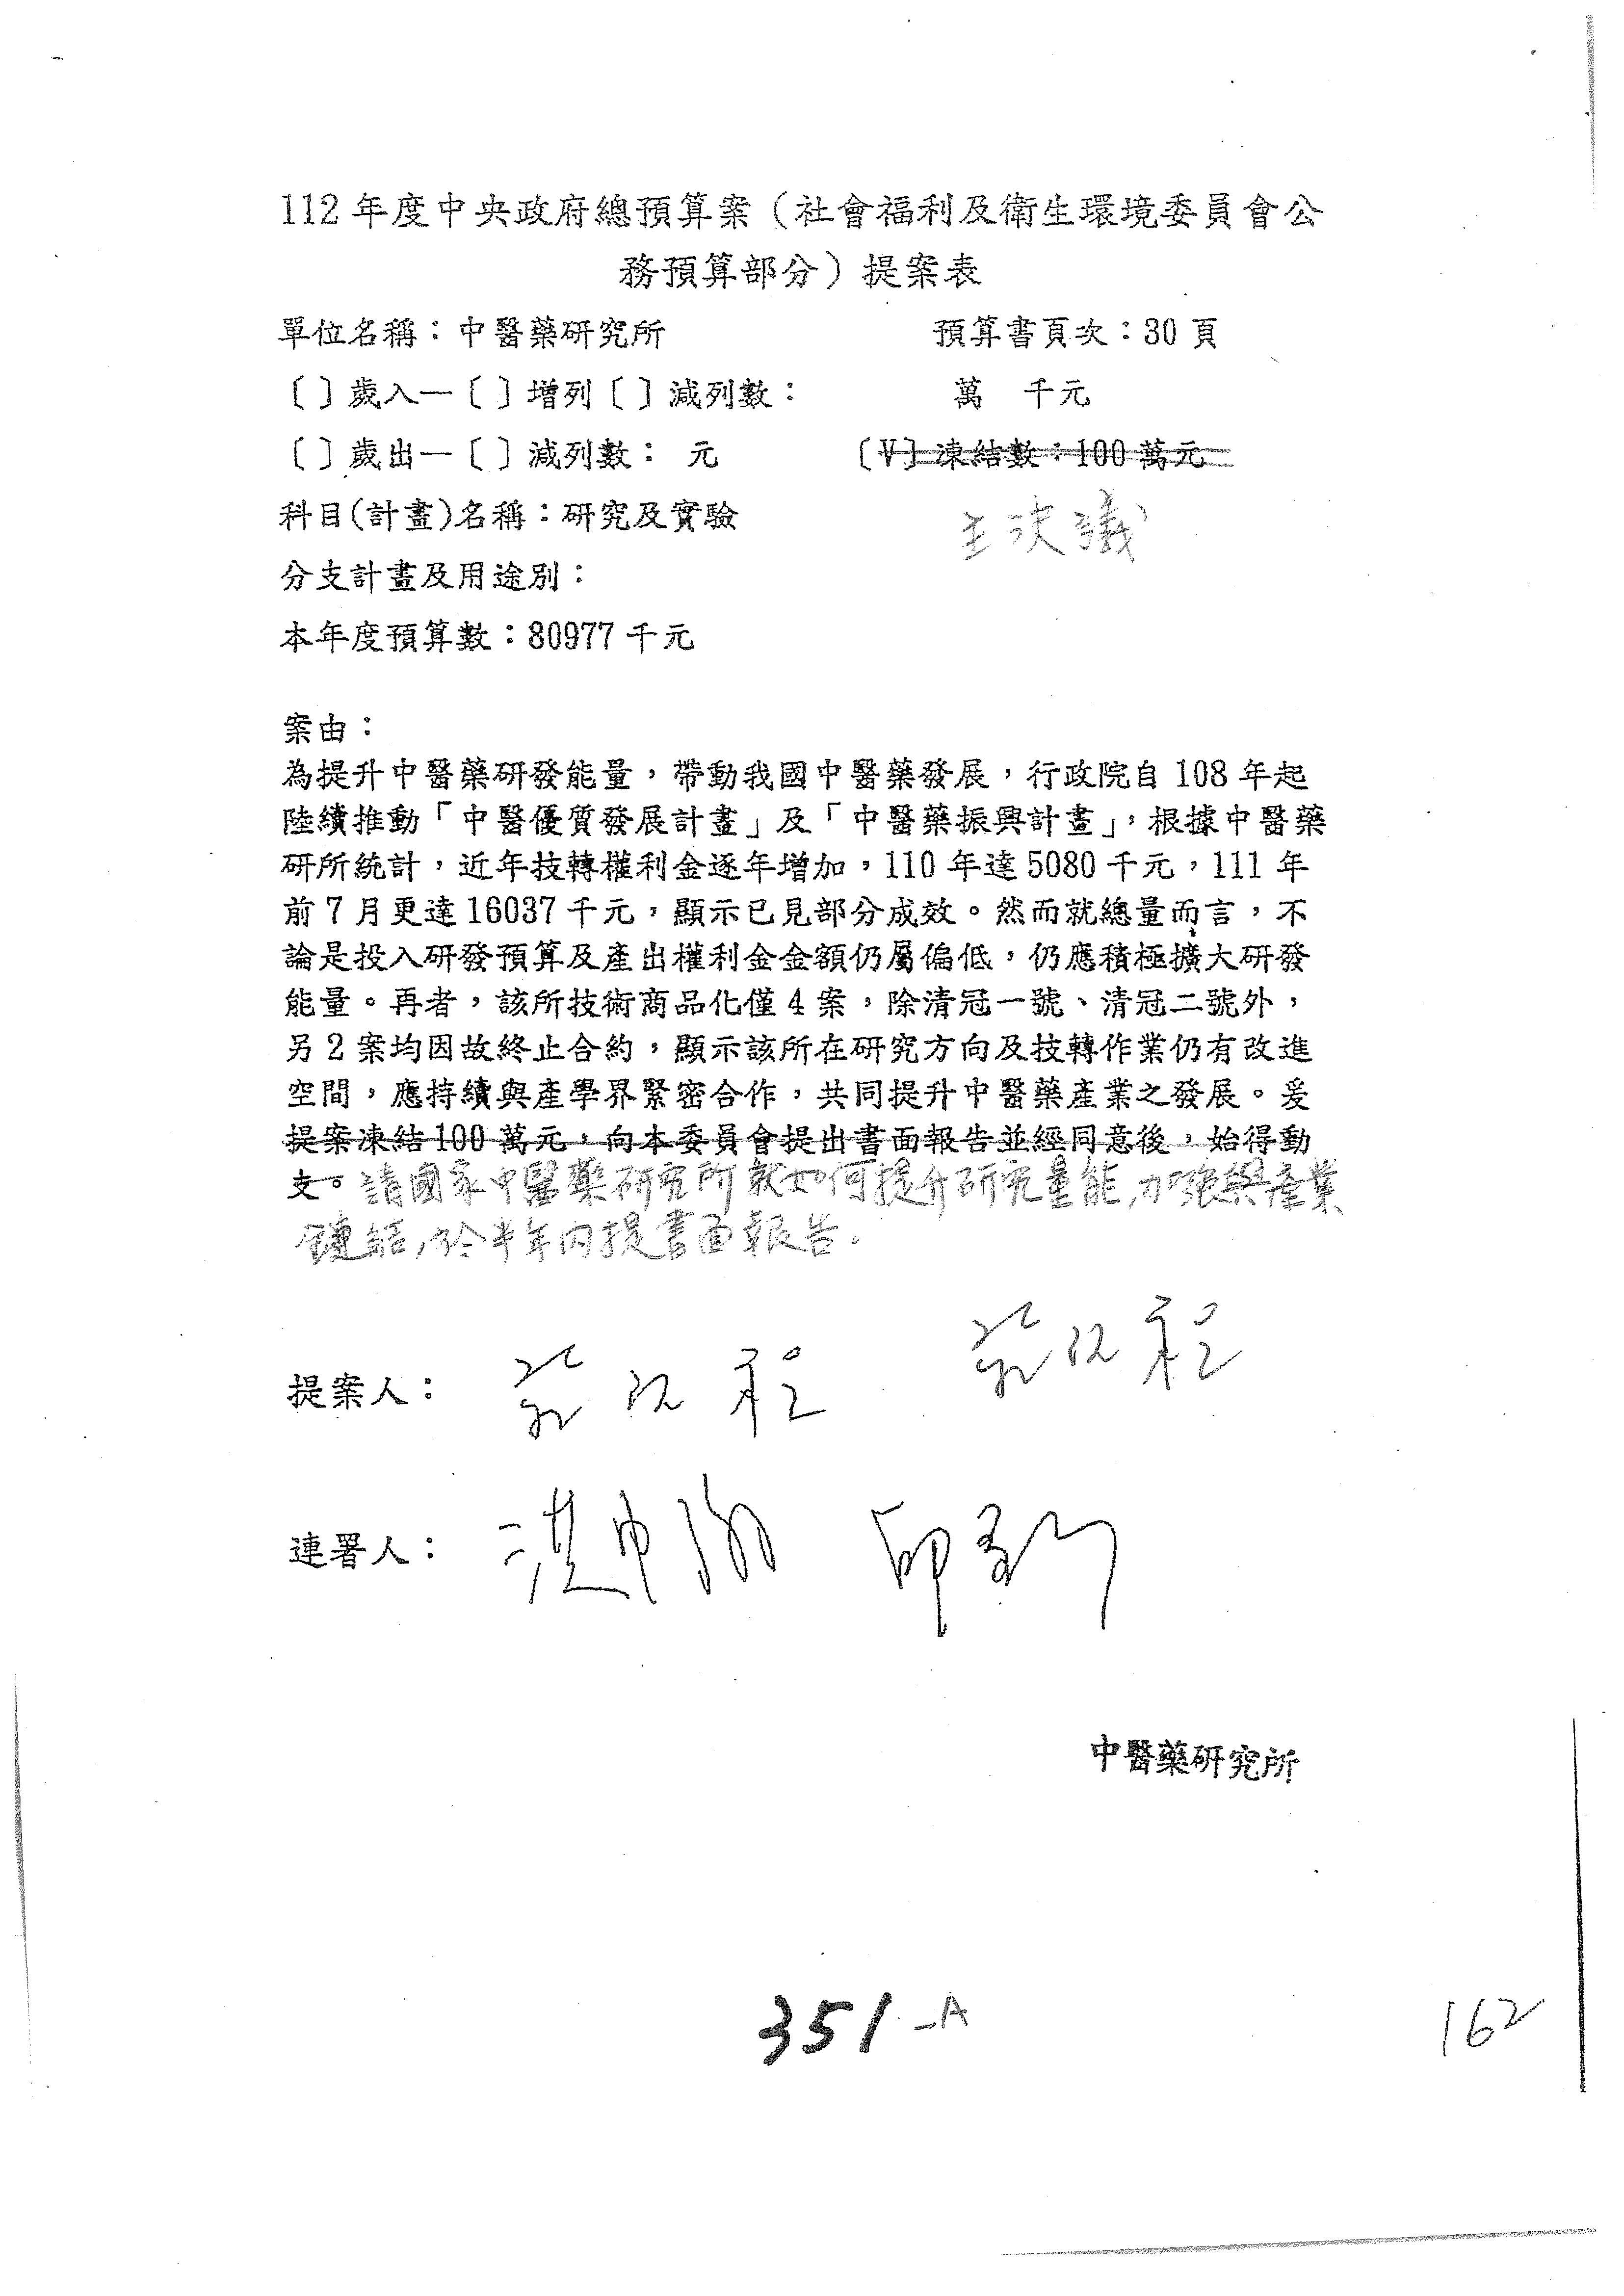 112年度中央政府總預算案（社會福利及衛生環境委員會公
務預算部分）提案表
單位名稱：中醫藥研究所 預算書頁次：30頁
〔〕歲入—〔〕增列〔〕減列數： 萬 千元
〔〕歲出—〔〕減列數： 元 〔V〕凍結數：100萬元
科目(計畫)名稱：研究及實驗
主決議
分支計畫及用途別：
本年度預算數：80977千元
案由：
為提升中醫藥研發能量，帶動我國中醫藥發展，行政院自108年起
陸續推動「中醫優質發展計畫」及「中醫藥振興計畫」，根據中醫藥
研所統計，近年技轉權利金逐年增加，110年達5080千元，111年
前7月更達16037千元，顯示已見部分成效。然而就總量而言，不
論是投入研發預算及產出權利金金額仍屬偏低，仍應積極擴大研發
能量。再者，該所技術商品化僅4案，除清冠一號、清冠二號外，
另2案均因故終止合約，顯示該所在研究方向及技轉作業仍有改進
空間，應持續與產學界緊密合作，共同提升中醫藥產業之發展。爰
提案凍結100萬元，向本委員會提出書面報告並經同意後，始得動
支。請國家中醫藥研究所就如何提升研究量能,加強與產業
鏈結,於半年內提書面報告.
提案人：
連署人：
中醫藥研究所
351-A
162